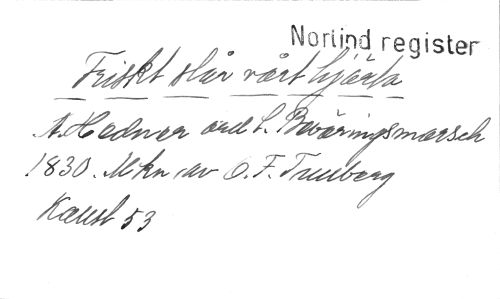 Norlind register
Friskt slår vårt hjärta
A. Hedner ord t. Beväringsmarsch
1830. Mkn av O. F. Tullberg
Kaust 53